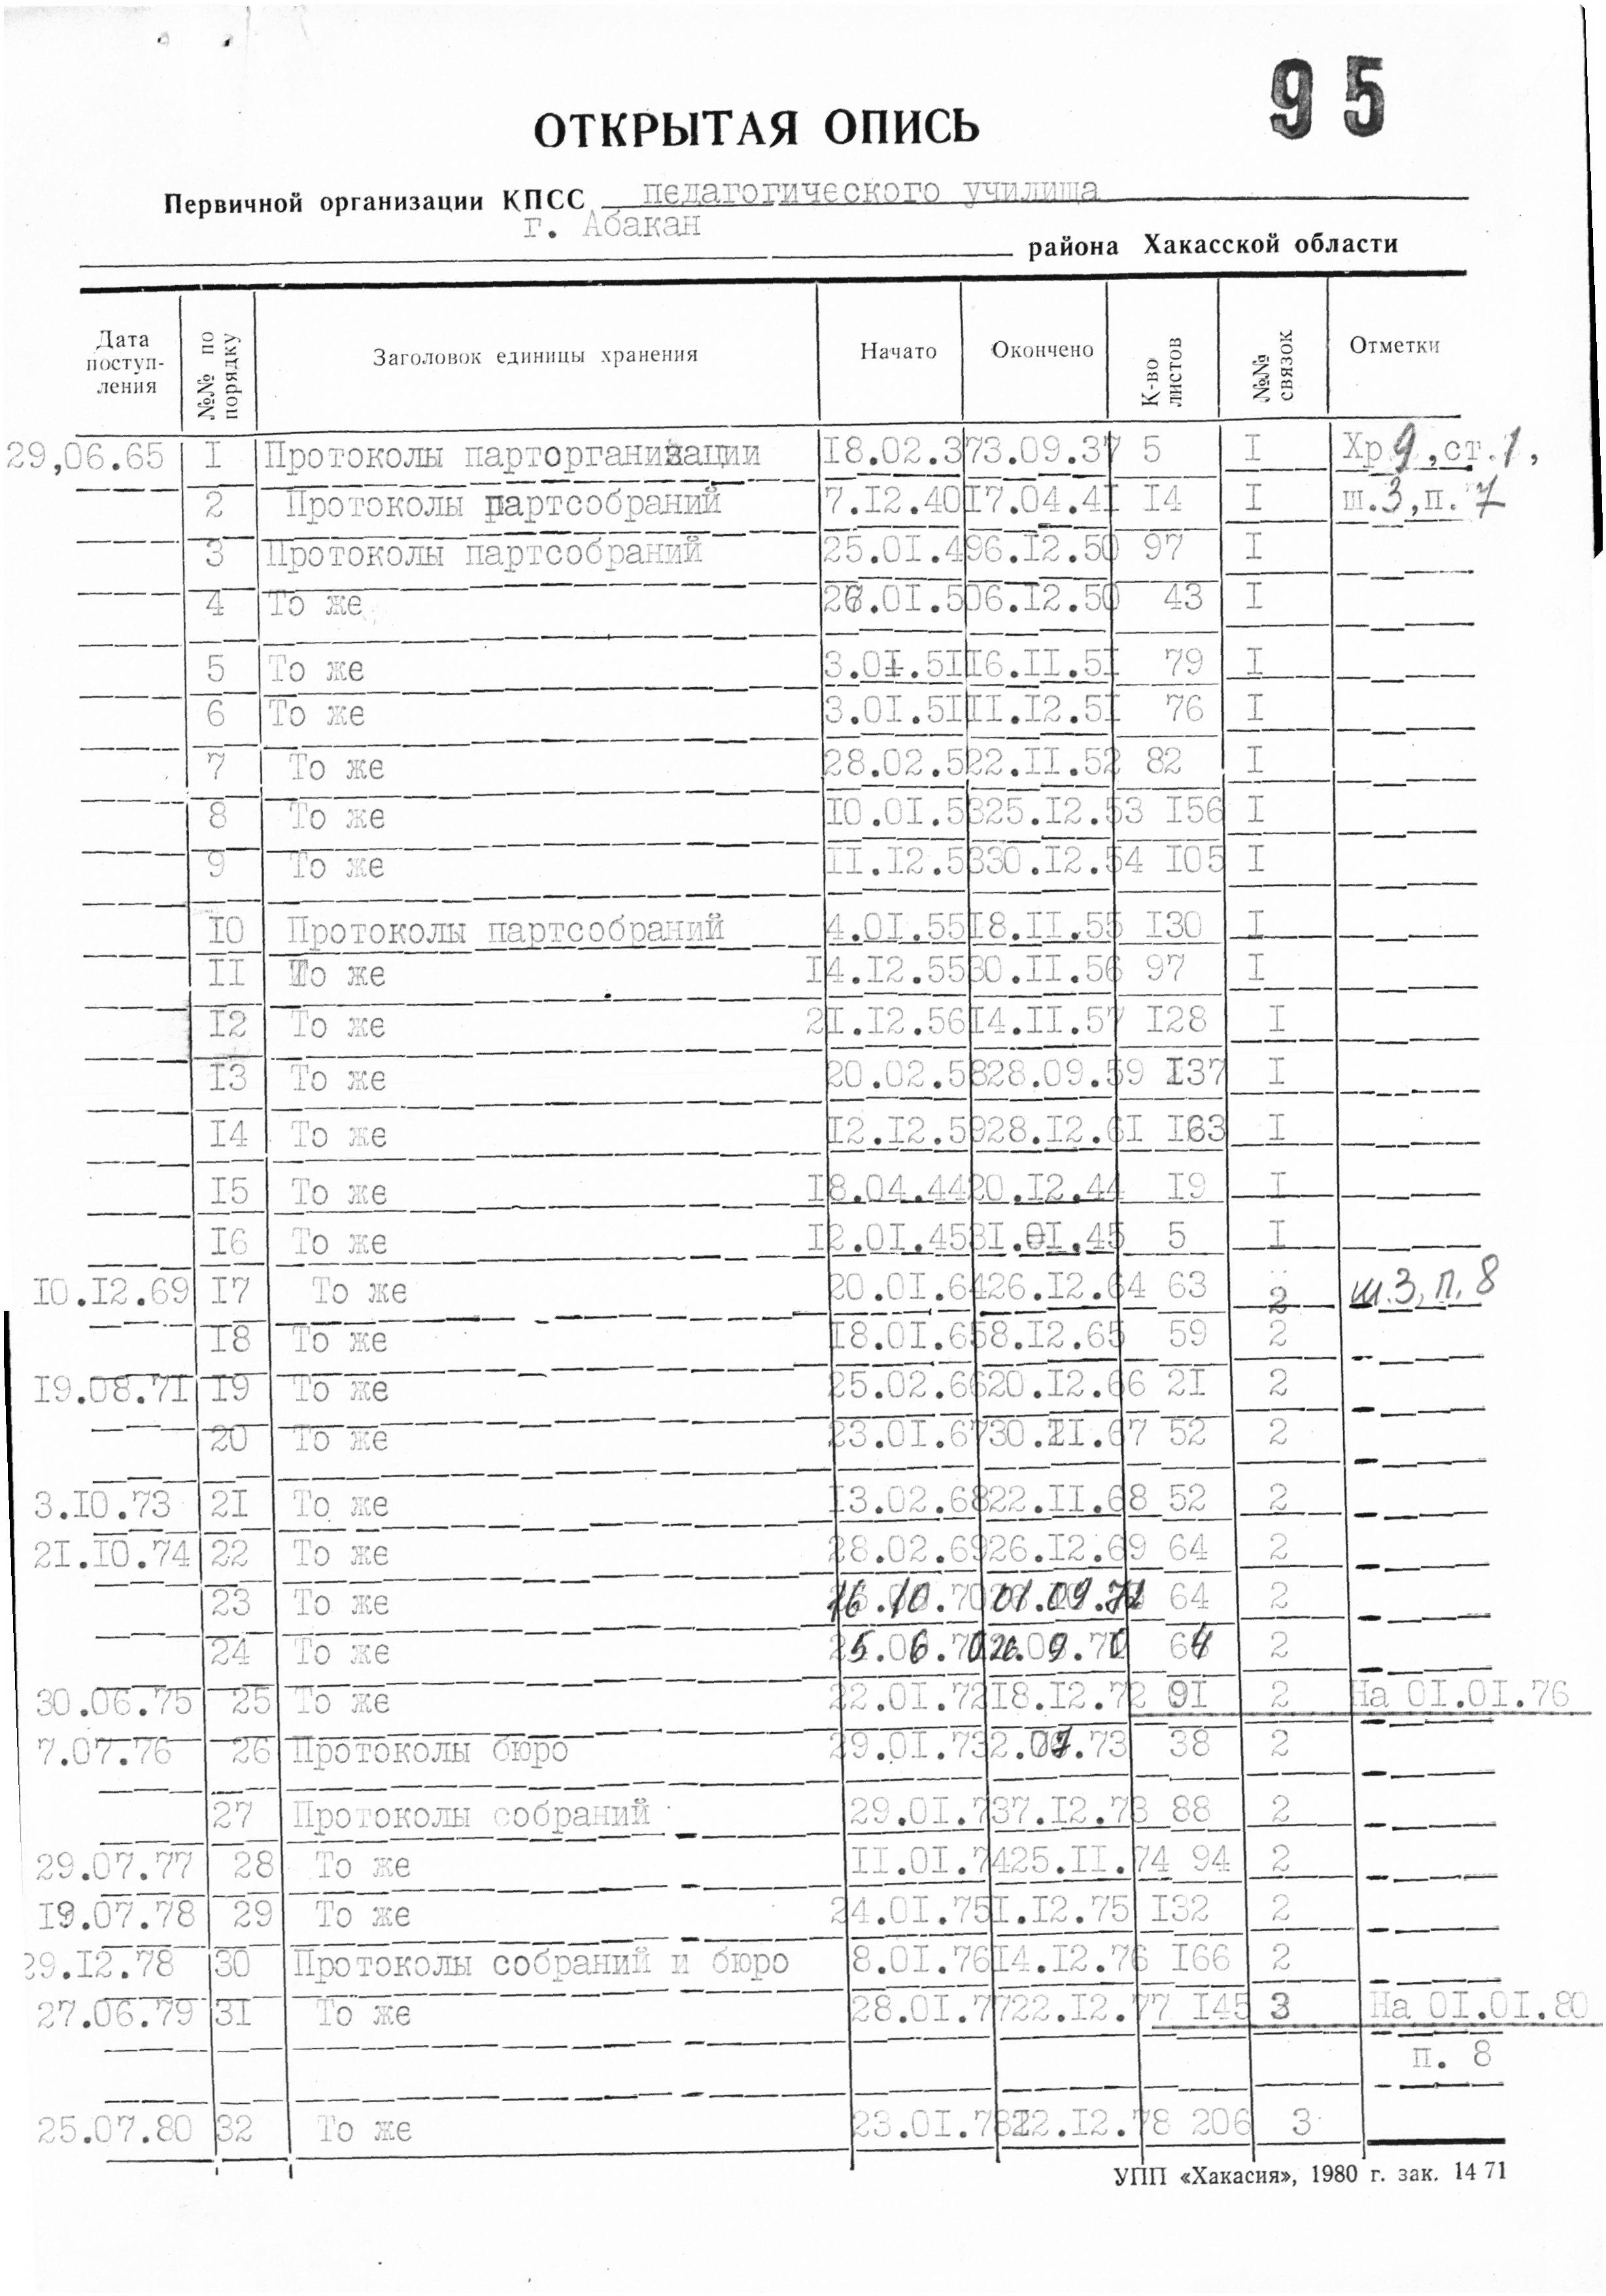 95
ОТКРЫТАЯ ОПИСЬ
Первичной организации КПСС педагогического училища
г. Абакан
района Хакасской области
Дата поступ-ления №№ по порядку Заголовок единицы хранения Начато Окончено К-во листов №№ связок Отметки
29,06.65 I Протоколы парторганизации 18.02.37 3.09.37 5 I Хр 9,ст.1,
2 Протоколы партсобраний 7.I2.40 I7.04.4I I4 I ш.3,п.7
3 Протоколы партсобраний 25.0I.49 6.I2.50 97 I
4 То же .0I.50 6.I2.50 43 I
5 То же 3.0I.5I I6.II.5I 79 I
6 То же 3.0I.5I II.I2.5I 76 I
7 То же 28.02.52 2.II.52 82 I
8 То же I0.0I.53 25.I2.53 I56 I
9 То же II.I2.53 30.I2.54 I05 I
I0 Протоколы партсобраний 4.0I.55 I8.II.55 I30 I
II То же I4.I2.55 30.II.56 97 I
I2 То же 2I.I2.56 I4.II.57 I28 I
I3 То же 20.02.58 28.09.59 I37 I
I4 То же I2.I2.59 28.I2.6I I63 I
I5 То же I8.04.44 20.I2.44 I9 I
I6 То же I2.0I.45 3I.0I.45 5 I
I0.I2.69 I7 То же 20.0I.64 26.I2.64 63 2 ш.3,п.8
I8 То же I8.0I.65 8.I2.65 59 2
I9.08.7I I9 То же 25.02.66 20.I2.66 2I 2
20 То же 23.0I.67 30.II.67 52 2
3.I0.73 2I То же I3.02.68 22.II.68 52 2
2I.I0.74 22 То же 28.02.69 26.I2.69 64 2
23 То же 16.10.70 01.09.71 64 2
24 То же 25.06.70 26.09.70 64 2
30.06.75 25 То же 22.0I.72 I8.I2.72 9I 2 На 0I.0I.76
7.07.76 26 Протоколы бюро 29.0I.73 2.07.73 38 2
27 Протоколы собраний 29.0I.73 7.I2.73 88 2
29.07.77 28 То же II.0I.74 25.II.74 94 2
I9.07.78 29 То же 24.0I.75 I.I2.75 I32 2
29.I2.78 30 Протоколы собраний и бюро 8.0I.76 I4.I2.76 I66 2
27.06.79 3I То же 28.0I.77 22.I2.77 I45 3 На 0I.0I.80
п. 8
25.07.80 32 То же 23.0I.78 22.I2.78 206 3
УПП «Хакасия», 1980 г. зак. 1471